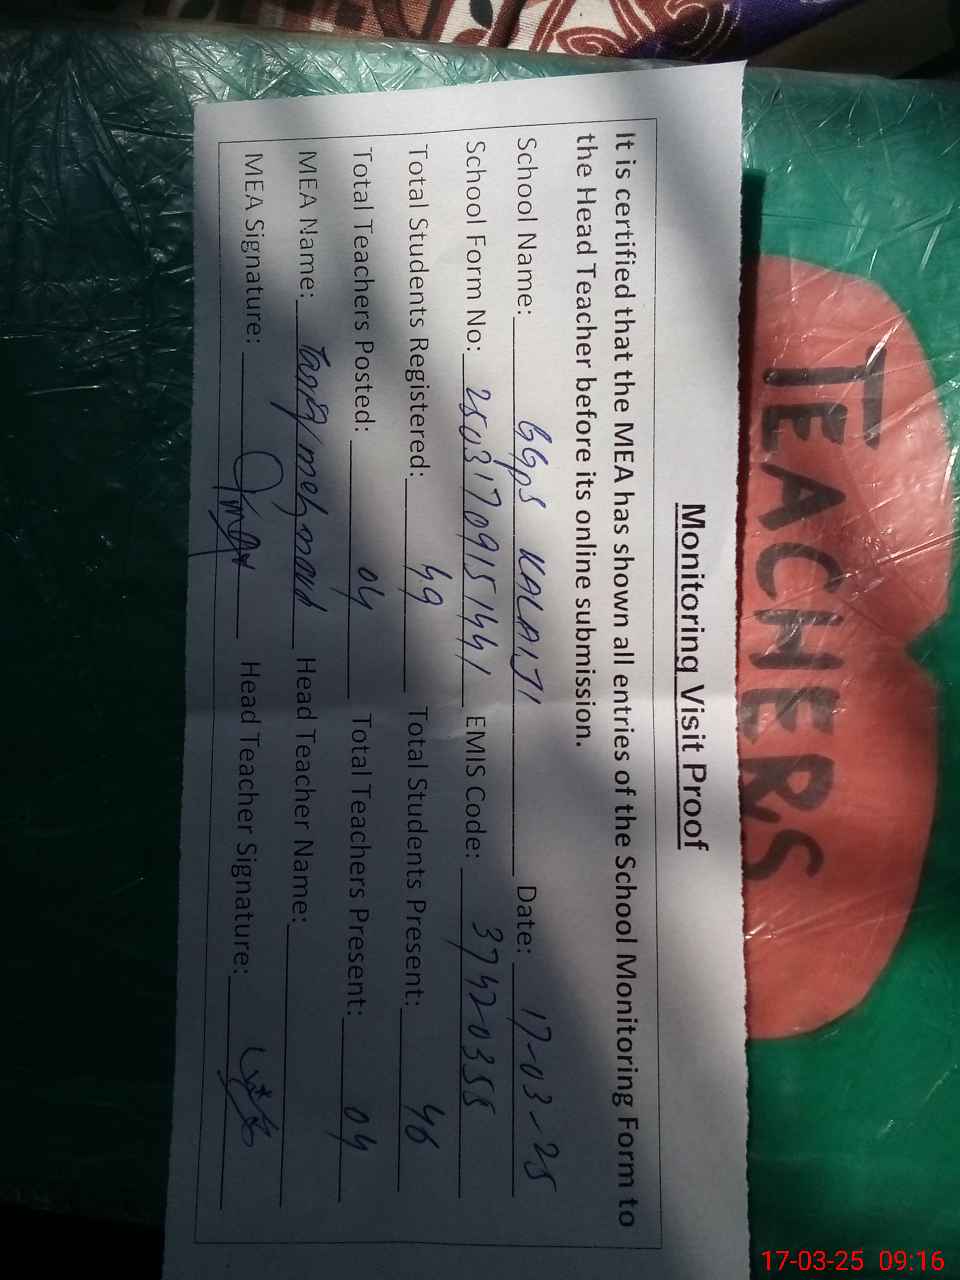 Monitoring Visit Proof
It is certified that the MEA has shown all entries of the School Monitoring Form to
the Head Teacher before its online submission.
School Name: GGPS KALAITI Date: 17-03-25
School Form No: 25031709151441 EMIS Code: 37420355
Total Students Registered: 49 Total Students Present: 46
Total Teachers Posted: 04 Total Teachers Present: 04
MEA Name: Tariq mehmood Head Teacher Name:
MEA Signature: Head Teacher Signature:
TEACHERS
17-03-25 09:16